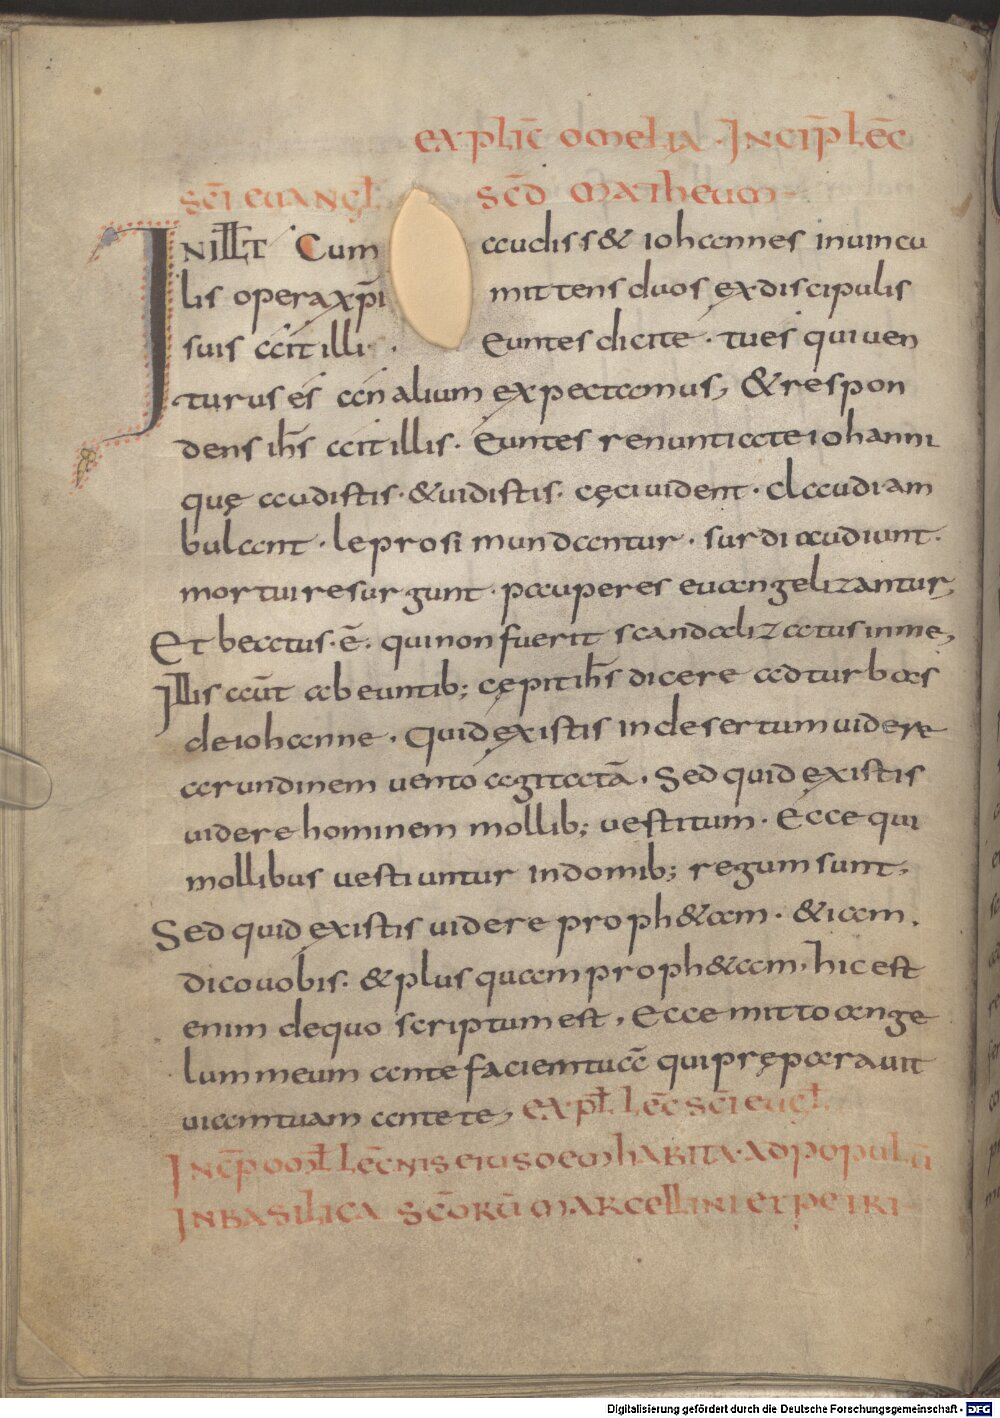 explic̄ omelia · Incip̄ lēc
sc̄i evangl̄ sc̄d matheum
IN ILLT Cum audiss& iohannes inuincu
lis opera xp̄i mittens duos ex discipulis
suis ait illi · Euntes dicite · tues qui uen
turus es an alium expectamus, & respon
dens ih̄s ait illis · Euntes renuntiate iohanni
quę audistis · & uidistis · cęci uident · claudi am
bulant · leprosi mundantur · surdi audiunt ·
mortui resurgunt · pauperes euangelizantur,
Et beatus · ē · qui non fuerit scandalizatus inme,
Illis aūt abeuntib; cępit ih̄s dicere ad turbas
de iohanne · Quid existis in desertum uidere
arundinem uento agitatā · Sed quid existis
uidere hominem mollib; uestitum · Ecce qui
mollibus uestiuntur indomib; regum sunt ·
Sed quid existis uidere proph&am · & iam ·
dico uobis · & plus quam proph&am · hic est
enim dequo scriptum est, Ecce mitto ange
lum meum ante faciem tuā qui pręparauit
uiam tuam ante te, expl̄ lēc sc̄i eugl̄
Incp̄ oml̄ lēcnis eiusdem habita · ad populū
In basilica sc̄orū marcellini et petri